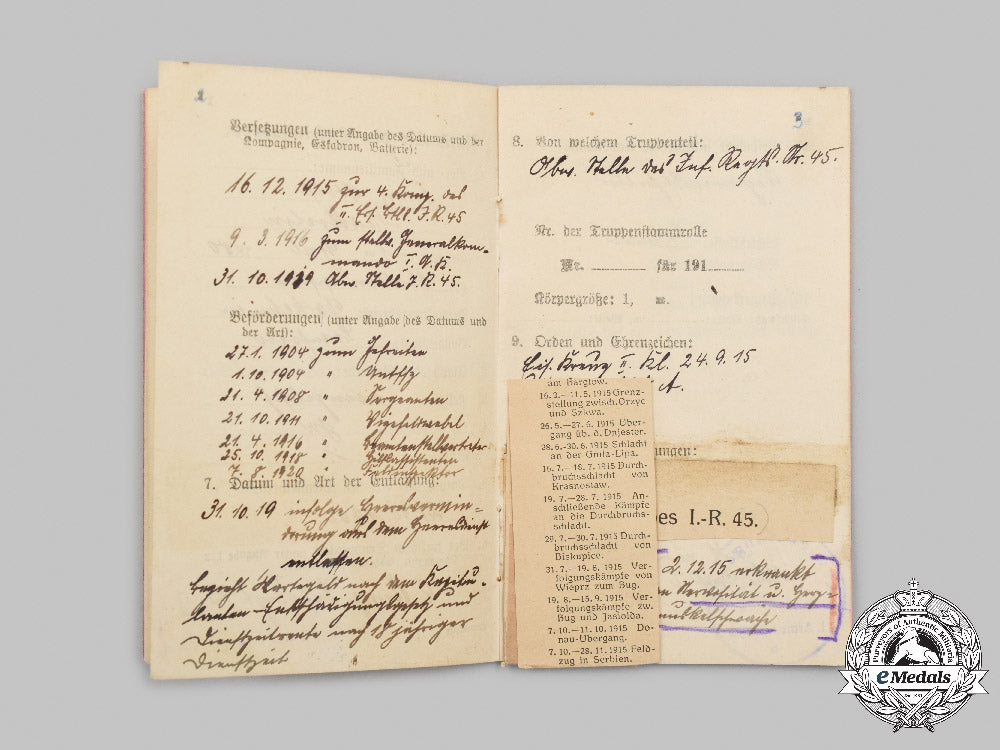 2
Versetzungen (unter Angabe des Datums und der
Kompagnie, Eskadron, Batterie):
16. 12. 1915 zur 4. Komp. des
II. Ers. Btl. I.R. 45
9. 3. 1916 zum stellv. Generalkom-
mando I. A. K.
31. 10. 1919 Abw. Stelle J. R. 45.
Beförderungen (unter Angabe des Datums und
der Art):
27. 1. 1904 zum Gefreiten
1. 10. 1904 " Untffz
21. 4. 1908 " Sergeanten
21. 10. 1911 " Vizefeldwebel
21. 4. 1916 " Beamtenstellvertreter
25. 10. 1918 "
7. 8. 1920 "
7. Datum und Art der Entlassung:
31. 10. 19 infolge Heeresvermin-
derung aus dem Heeresdienst
entlassen.
Bezieht Wartegeld nach dem Kapitu-
lanten-Entschädigungsgesetz und
Dienstzeitrente nach 18 jähriger
Dienstzeit
3
8. Von welchem Truppenteil:
Abw. Stelle des Inf. Regts. Nr. 45.
Nr. der Truppenstammrolle
Nr. für 191
Körpergröße: 1, m.
9. Orden und Ehrenzeichen:
Eis. Kreuz II. Kl. 24. 9. 15
A.
am Narglow.
16. 2.– 11. 5. 1915 Grenz-
stellung zwisch. Orzyc
und Szkwa.
26. 5.–27. 6. 1915 Über-
gang üb. d. Dnjester.
28. 6.-30. 6. 1915 Schlacht
an der Gnita-Lipa.
16. 7.– 18. 7. 1915 Durch-
bruchsschlacht von
Krasnostaw.
19. 7.–28. 7. 1915 An-
schließende Kämpfe
an die Durchbruchs-
schlacht.
29. 7.–30. 7. 1915 Durch-
bruchsschlacht von
Biskupice.
31. 7.– 19. 8. 1915 Ver-
folgungskämpfe von
Wieprz zum Bug.
19. 8.–15. 9. 1915 Ver-
folgungskämpfe zw.
Bug und Jasiolda.
7. 10.–11. 10. 1915 Do-
nau-Übergang.
7. 10.–28. 11. 1915 Feld-
zug in Serbien.
ungen:
es I.-R. 45.
2. 12. 15 erkrankt
n Nervosität u. Herz-
muskelschwäche
Purveyors of Authentic Militaria
eMedals